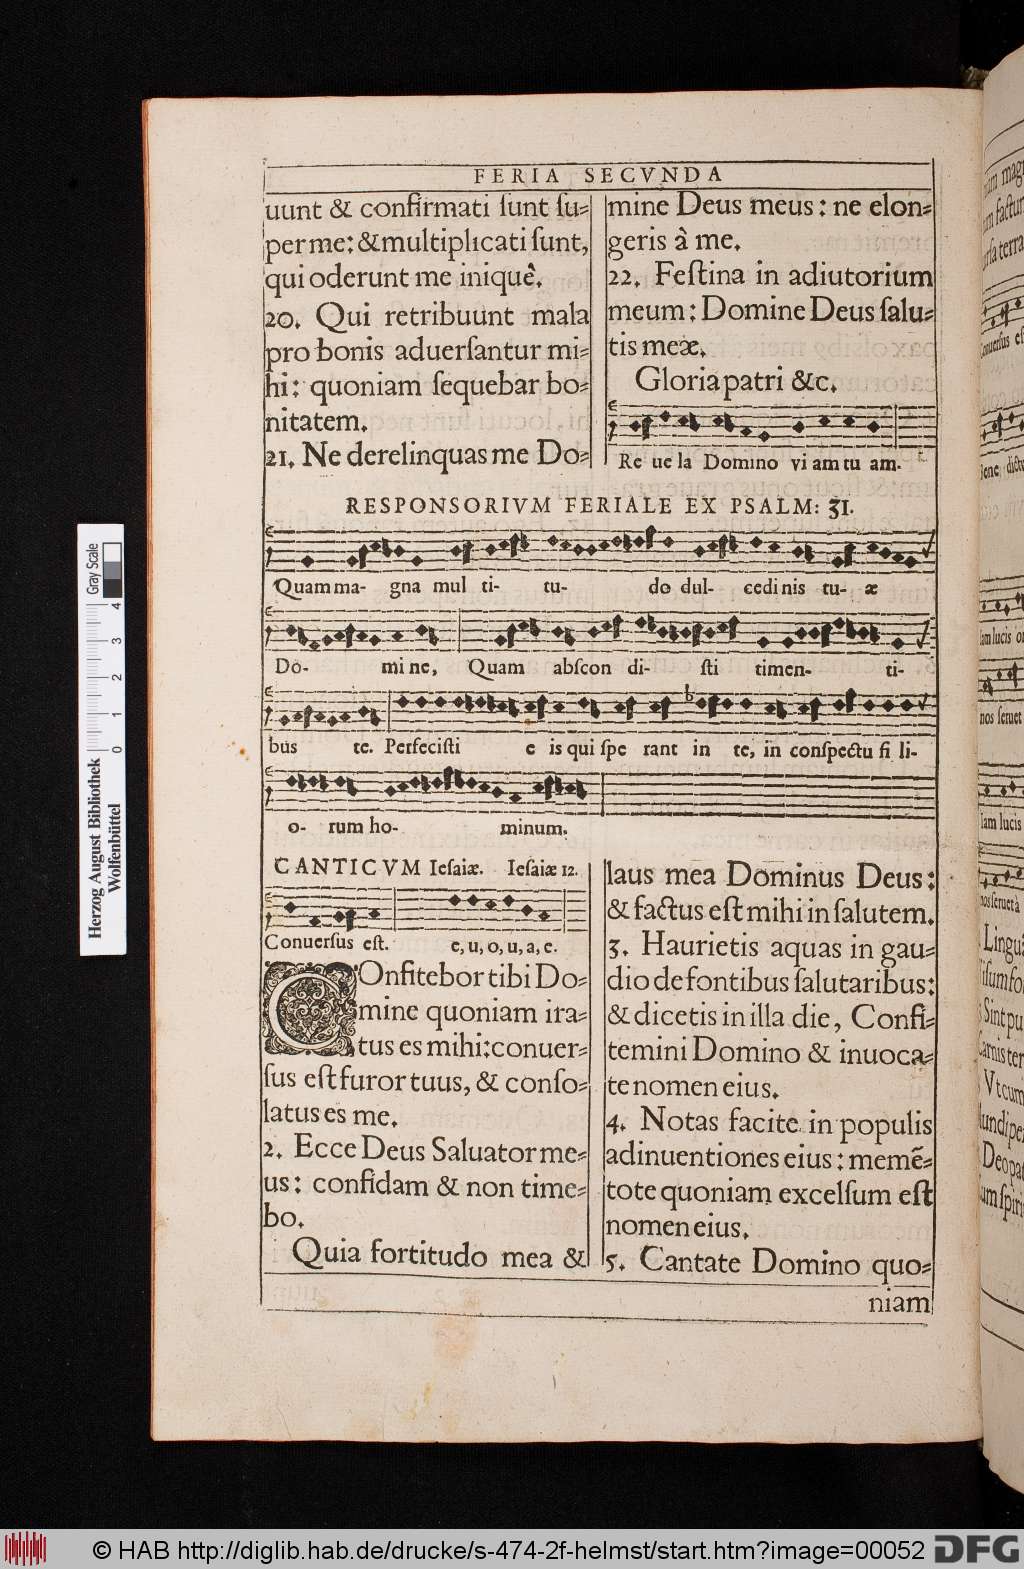 FERIA SECVNDA
uunt & confirmati ſunt ſu=
per me: & multiplicati ſunt,
qui oderunt me iniquè.
20. Qui retribuunt mala
pro bonis aduerſantur mi=
hi: quoniam ſequebar bo=
nitatem.
21. Ne derelinquas me Do=
mine Deus meus: ne elon=
geris à me.
22. Feſtina in adiutorium
meum: Domine Deus ſalu=
tis meæ.
Gloria patri &c.
Re ue la Domino vi am tu am.
RESPONSORIVM FERIALE EX PSALM: 31.
Quam ma- gna mul ti- tu- do dul- cedi nis tu- æ
Do- mi ne, Quam abſcon di- ſti timen- ti-
bus te. Perfeciſti e is qui ſpe rant in te, in conſpectu fi li-
o- rum ho- minum.
CANTICVM Ieſaiæ. Ieſaiæ 12.
Conuerſus eſt. e, u, o, u, a, e.
COnfitebor tibi Do=
mine quoniam ira=
tus es mihi: conuer=
ſus eſt furor tuus, & conſo=
latus es me.
2. Ecce Deus Saluator me=
us: confidam & non time=
bo.
Quia fortitudo mea &
laus mea Dominus Deus:
& factus eſt mihi in ſalutem.
3. Haurietis aquas in gau=
dio de fontibus ſalutaribus:
& dicetis in illa die, Confi=
temini Domino & inuoca=
te nomen eius.
4. Notas facite in populis
adinuentiones eius: memẽ=
tote quoniam excelſum eſt
nomen eius.
5. Cantate Domino quo=
niam
Conuerſus eſ
Iam lucis
nos ſeruet
Iam lucis
nos ſeruet à
Lingu
Sint pu
Carnis ter
Vt cum
Deo pa
Gray Scale
0 1 2 3 4
Herzog August Bibliothek
Wolfenbüttel
© HAB http://diglib.hab.de/drucke/s-474-2f-helmst/start.htm?image=00052
DFG